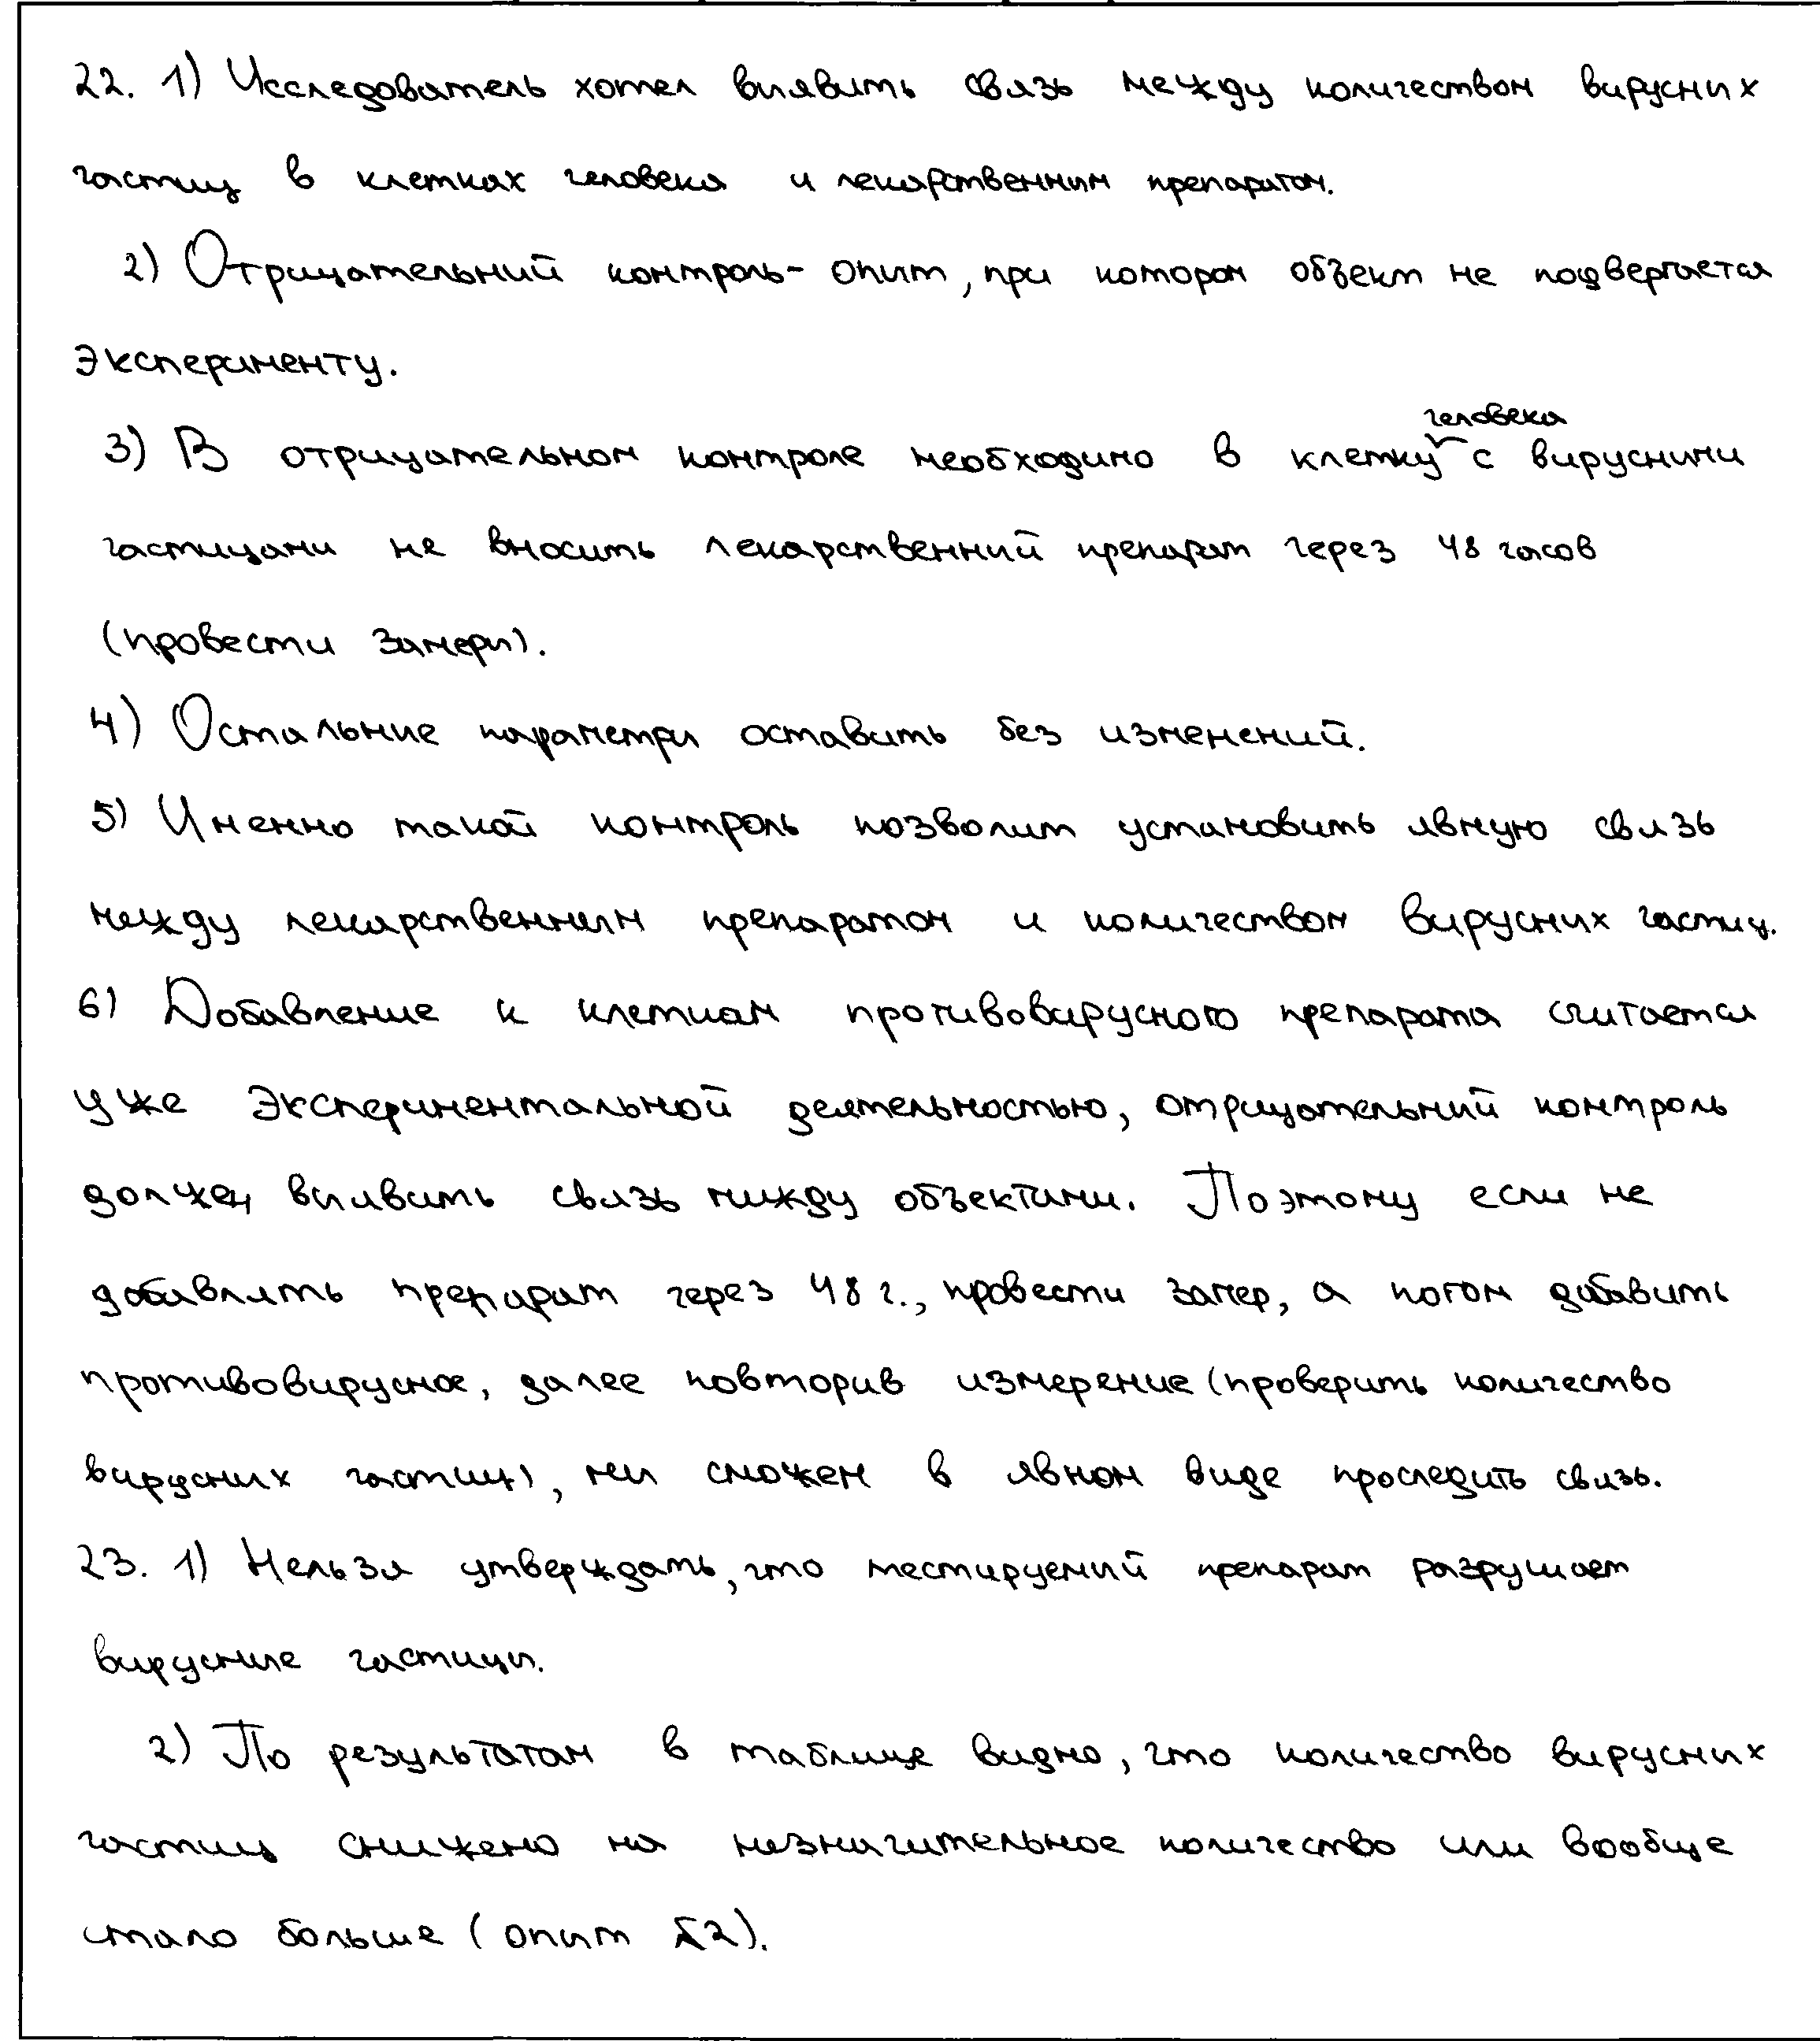 22. 1) Исследователь хотел выявить связь между количеством вирусных
частиц в клетках человека и лекарственным препаратом.
2) Отрицательный контроль - опыт, при котором объект не подвергается
эксперименту.
3) В отрицательном контроле необходимо в клетку человека с вирусными
частицами не вносить лекарственный препарат через 48 часов
(провести замеры).
4) Остальные параметры оставить без изменений.
5) Именно такой контроль позволит установить явную связь
между лекарственным препаратом и количеством вирусных частиц.
6) Добавление к клеткам противовирусного препарата считается
уже экспериментальной деятельностью, отрицательный контроль
должен выявить связь между объектами. Поэтому если не
добавлять препарат через 48 ч., провести замер, а потом добавить
противовирусное, далее повторив измерение (проверить количество
вирусных частиц), мы сможем в явном виде проследить связь.
23. 1) Нельзя утверждать, что тестируемый препарат разрушает
вирусные частицы.
2) По результатам в таблице видно, что количество вирусных
частиц снижено на незначительное количество или вообще
стало больше (опыт 2).